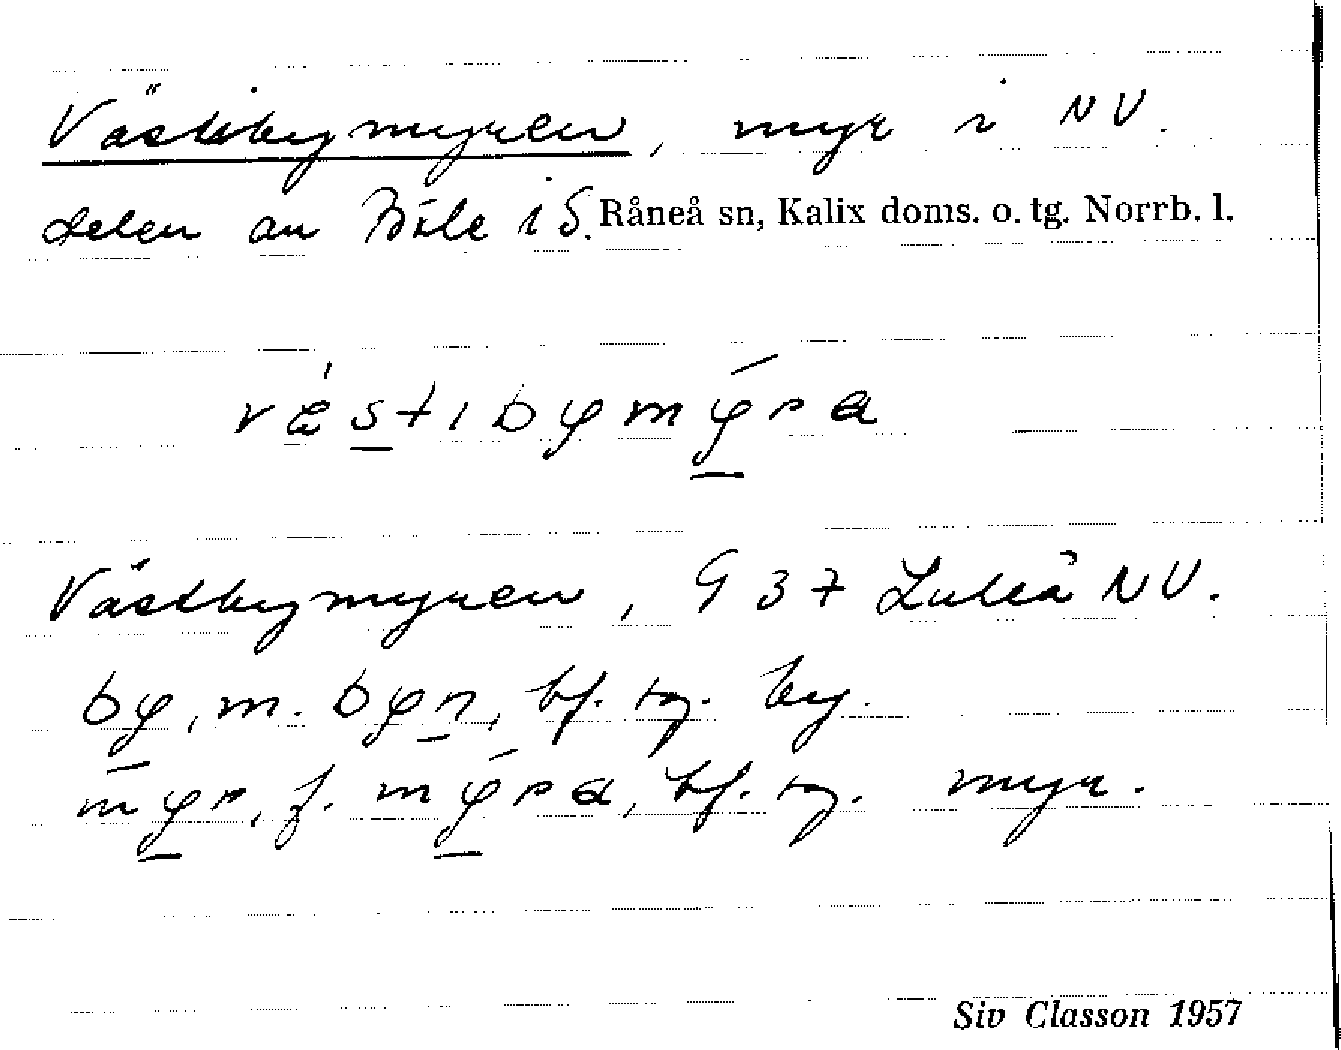 Västibymyren, myr i NV.
delen av Böle i S. Råneå sn, Kalix doms. o. tg. Norrb. l.
væ̀stibymýra
Västbymyren, G 37 Luleå NV.
by, m. byn, bf. sg. by.
myr, f. mýra, bf. sg. myr.
Siv Classon 1957